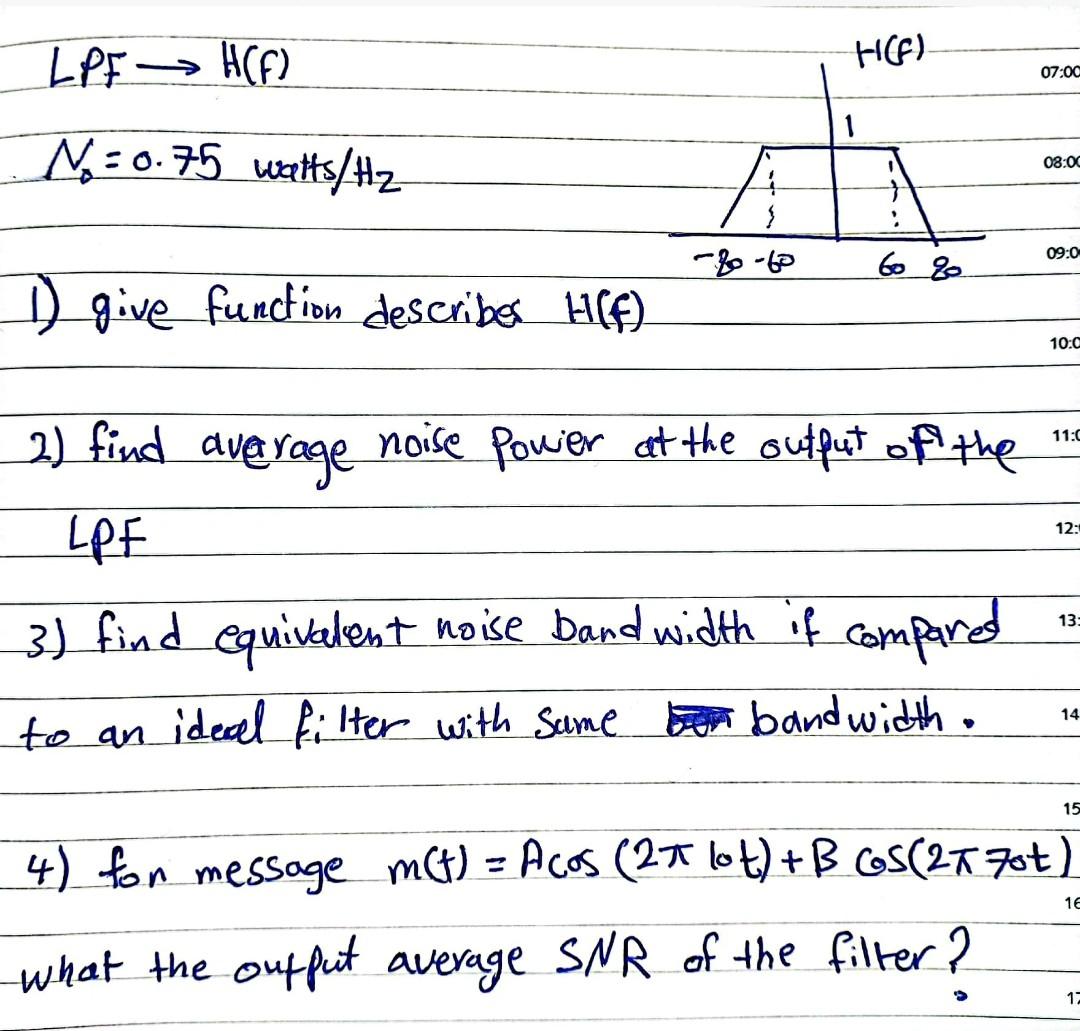 LPF → H(f)
H(f)
07:00
1
N₀ = 0.75 watts/Hz
08:00
-80 -60 60 80
09:0
1) give function describes H(f)
10:0
2) find average noise power at the output of the
11:0
LPF
12:
3) find equivalent noise band width if compared
13:
to an ideal filter with same band width.
14
15
4) for message m(t) = A cos (2π 10t) + B cos(2π 70t)
16
what the output average SNR of the filter?
17